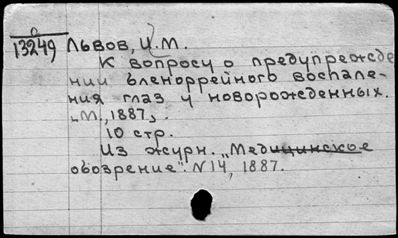 0
13249 Львов, И.М.
К вопросу о предупрежде
нии бленоррейного воспале-
ния глаз у новорожденных.
"М.", 1887,.
10 стр.
Из журн. "Медицинское
обозрение". N14, 1887.